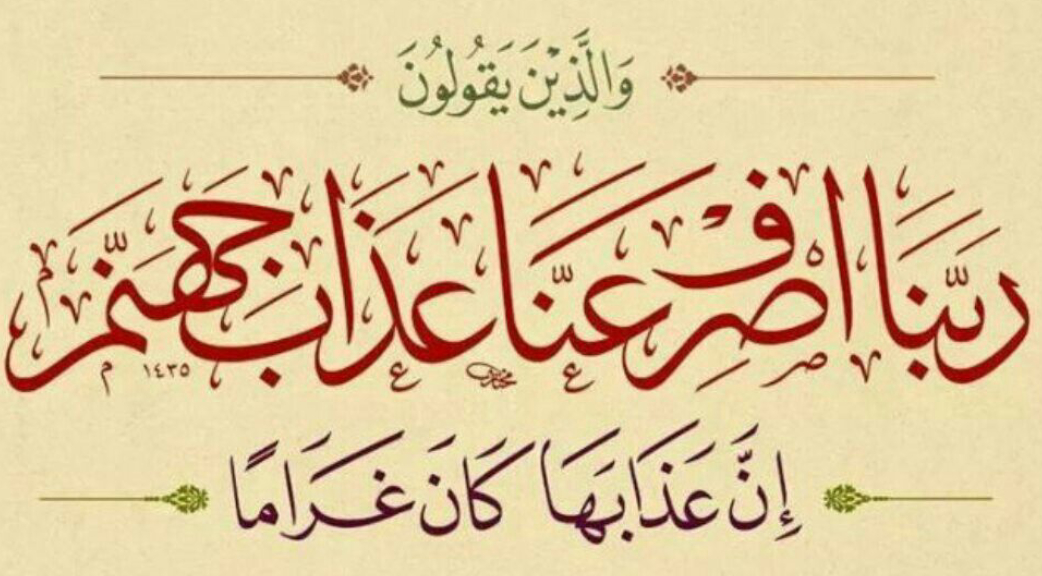 وَالَّذِيْنَ يَقُولُونَ
رَبَّنَا اصْرِفْ عَنَّا عَذَابَ جَهَنَّمَ
١٤٣٥
إِنَّ عَذَابَهَا كَانَ غَرَامًا